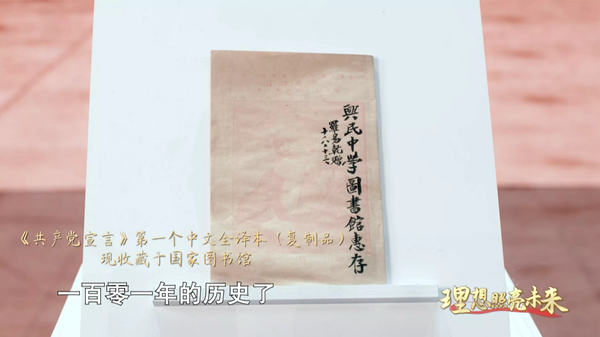 興民中学圖書館惠存
羅易乾贈
十八、十三
《共产党宣言》第一个中文全译本（复制品）
现收藏于国家图书馆
一百零一年的历史了
理想照亮未来